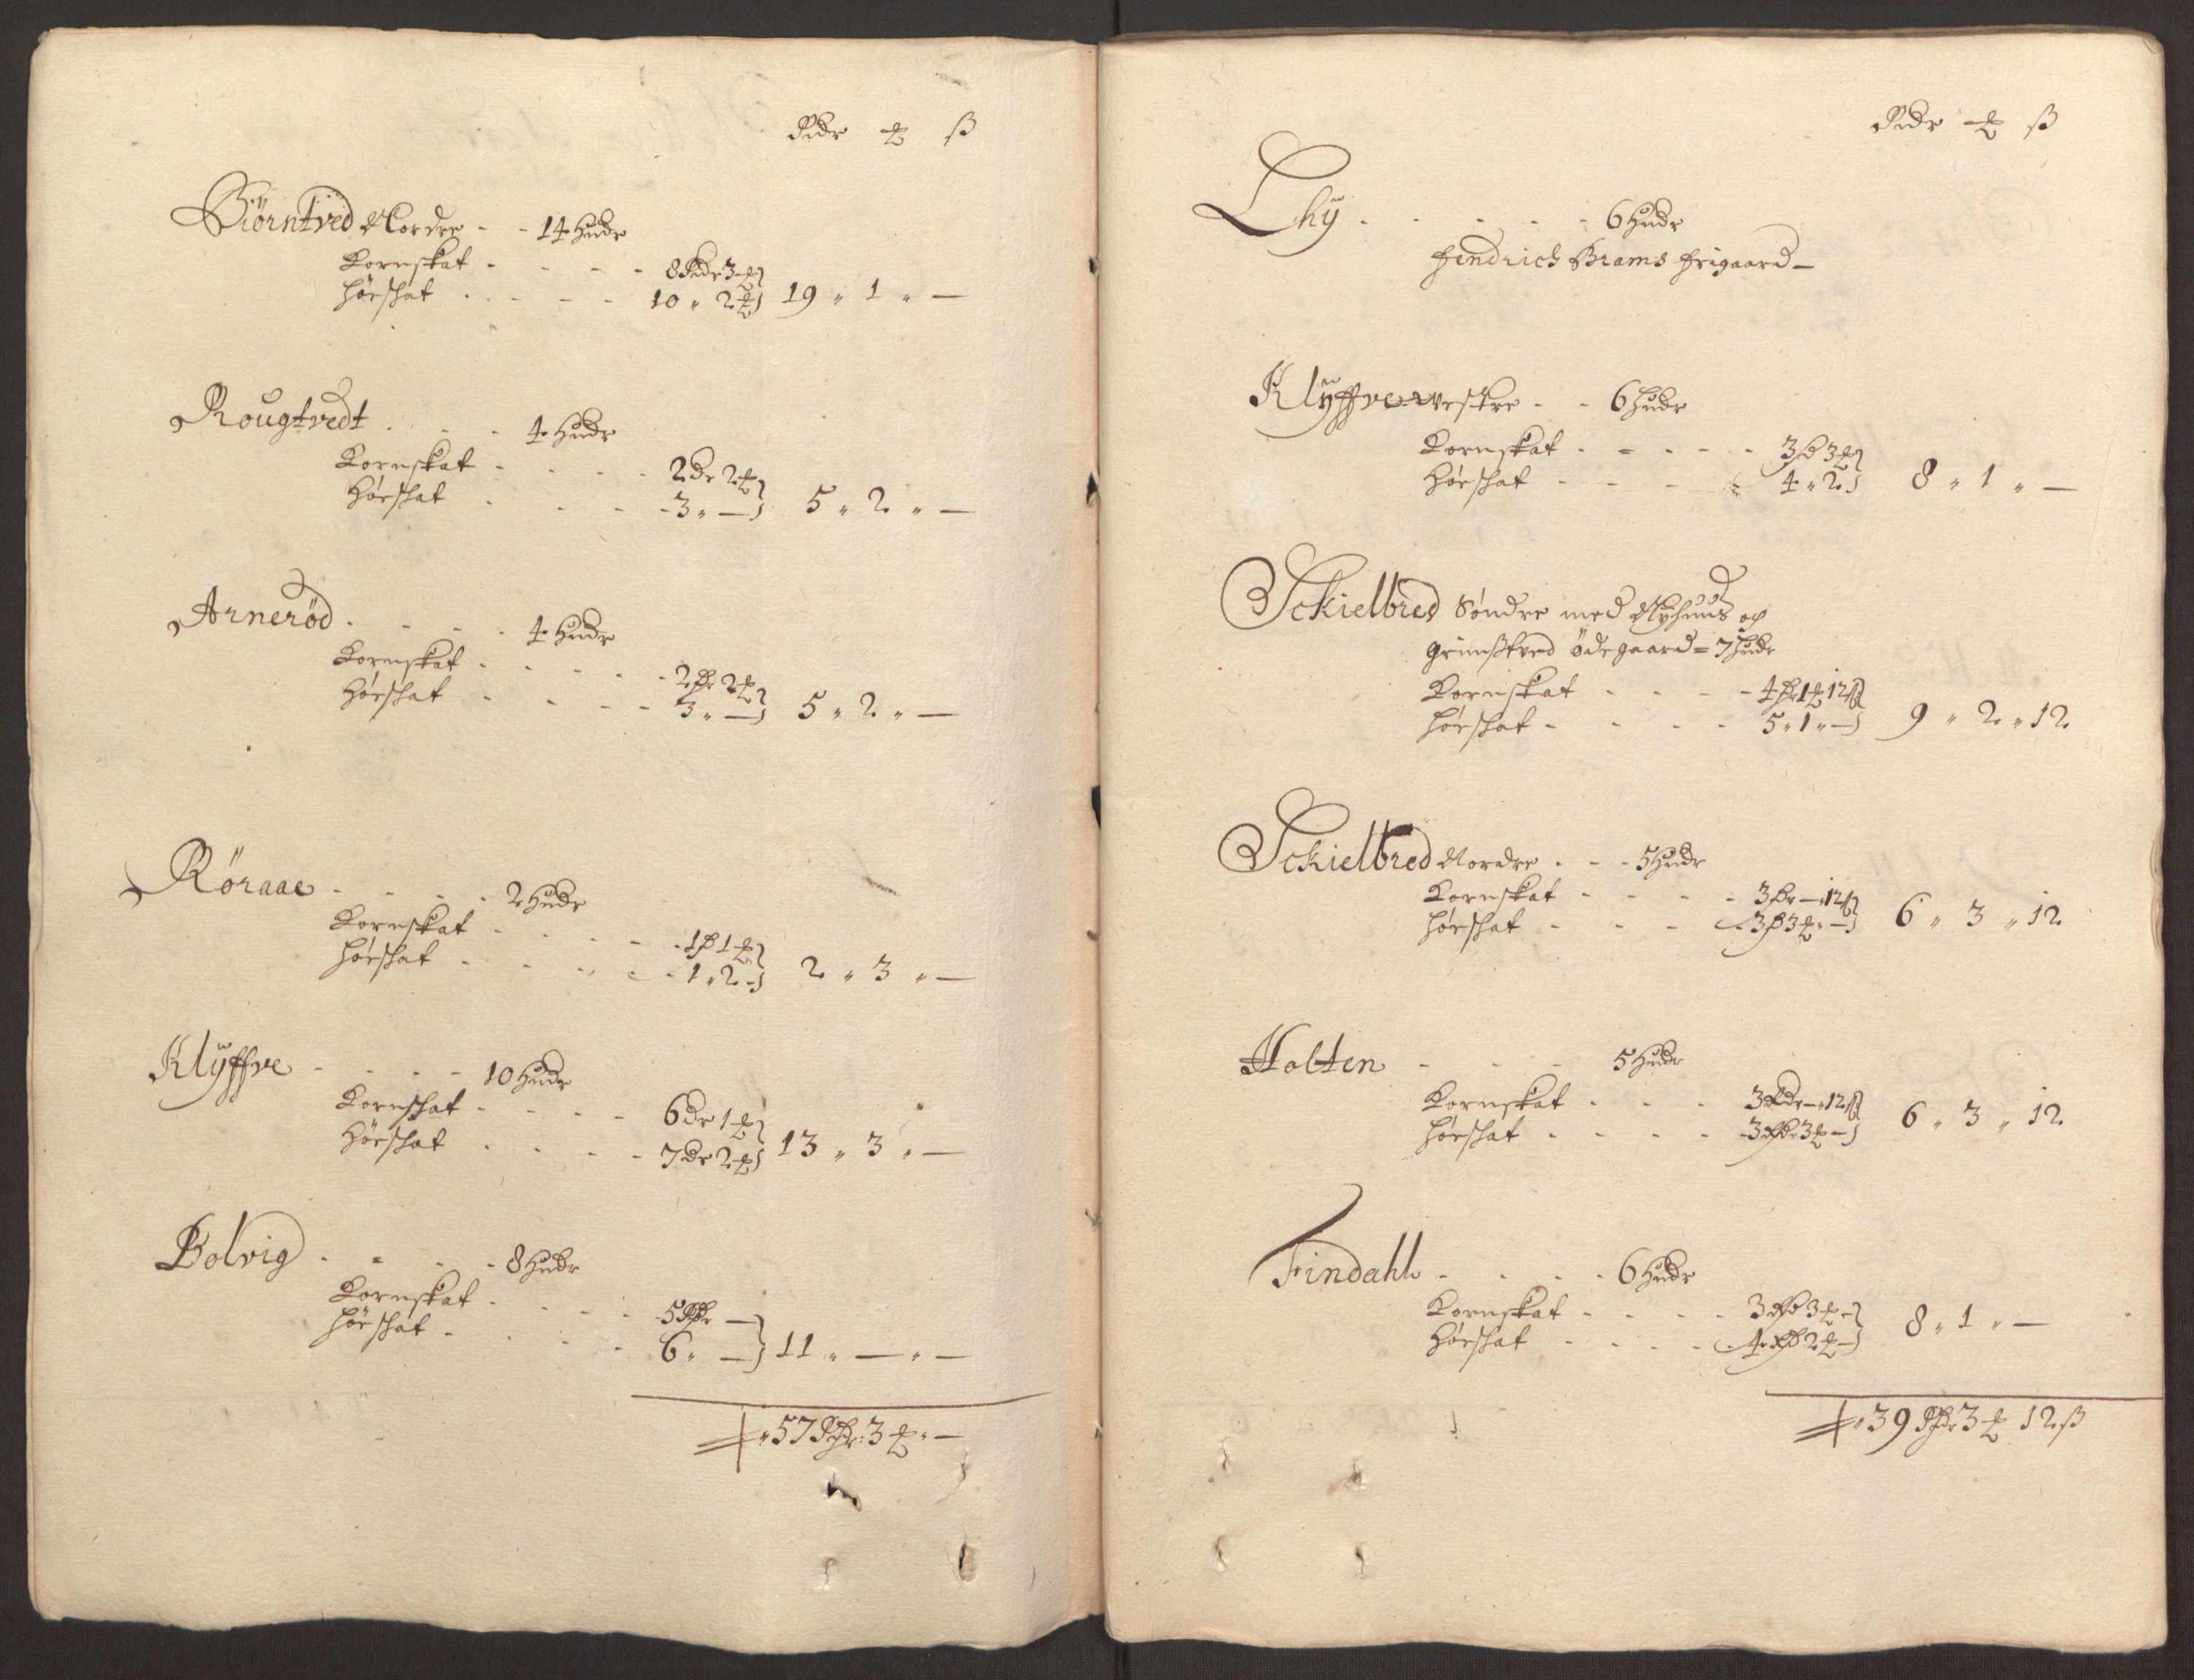 Rdr ₰ ß
Biörntved Nordre - - 14 Hudr
Kornskat - - - - 8 Rdr 3 ₰
Hörschat - - - - 10 „ 2 ₰ } 19 „ 1 „ —
Rougtvedt - - - 4 Hudr
Kornskat - - - - 2 dr 2 ₰
Hörschat - - - - 3 „ — } 5 „ 2 „ —
Arneröd - - - - 4 Hudr
Kornskat - - - - 2 Rr 2 ₰
Hörschat - - - - 3 „ — } 5 „ 2 „ —
Röraae - - - - 2 Hudr
Kornskat - - - - 1 R 1 ₰
Hörschat - - - - 1 „ 2 - } 2 „ 3 „ —
Klÿffve - - - - 10 Hudr
Kornschat - - - - 6 dr 1 ₰
Hörschat - - - - 7 dr 2 ₰ } 13 „ 3 „ —
Bolvig - - - - 8 Hudr
Kornskat - - - - 5 Rdr —
Hörschat - - - - 6 „ — } 11 „ — „ —
„ 57 Rdr: 3 ₰ „ —
Rdr ₰ ß
Lhÿ - - - - - 6 Hudr
Hendrich Brams frigaard —
Klÿffve westre - - 6 Hudr
Kornskat - - - - - 3 R 3 ₰
Hörschat - - - - 4 „ 2 } 8 „ 1 „ —
Schielbred Söndre med Nÿhuus og
Grimßtved ödegaard = 7 Hudr
Kornskat - - - - 4 Rr 1 ₰ 12 ß
Hörschat - - - - 5 „ 1 „ — } 9 „ 2 „ 12
Schielbred Nordre - - - 5 Hudr
Kornskat - - - - 3 Rr — 12 ß
Hörschat - - - - 3 R 3 ₰ „ — } 6 „ 3 „ 12
Holten - - - 5 Hudr
Kornskat - - - 3 Rdr — „ 12 ß
Hörschat - - - - 3 Rdr 3 ₰ — } 6 „ 3 „ 12
Findahl - - - - 6 Hudr
Kornskat - - - - 3 Rd 3 ₰ -
Hörschat - - - - 4 Rd 2 ₰ — } 8 „ 1 „ —
„ 39 Rdr 3 ₰ 12 ß